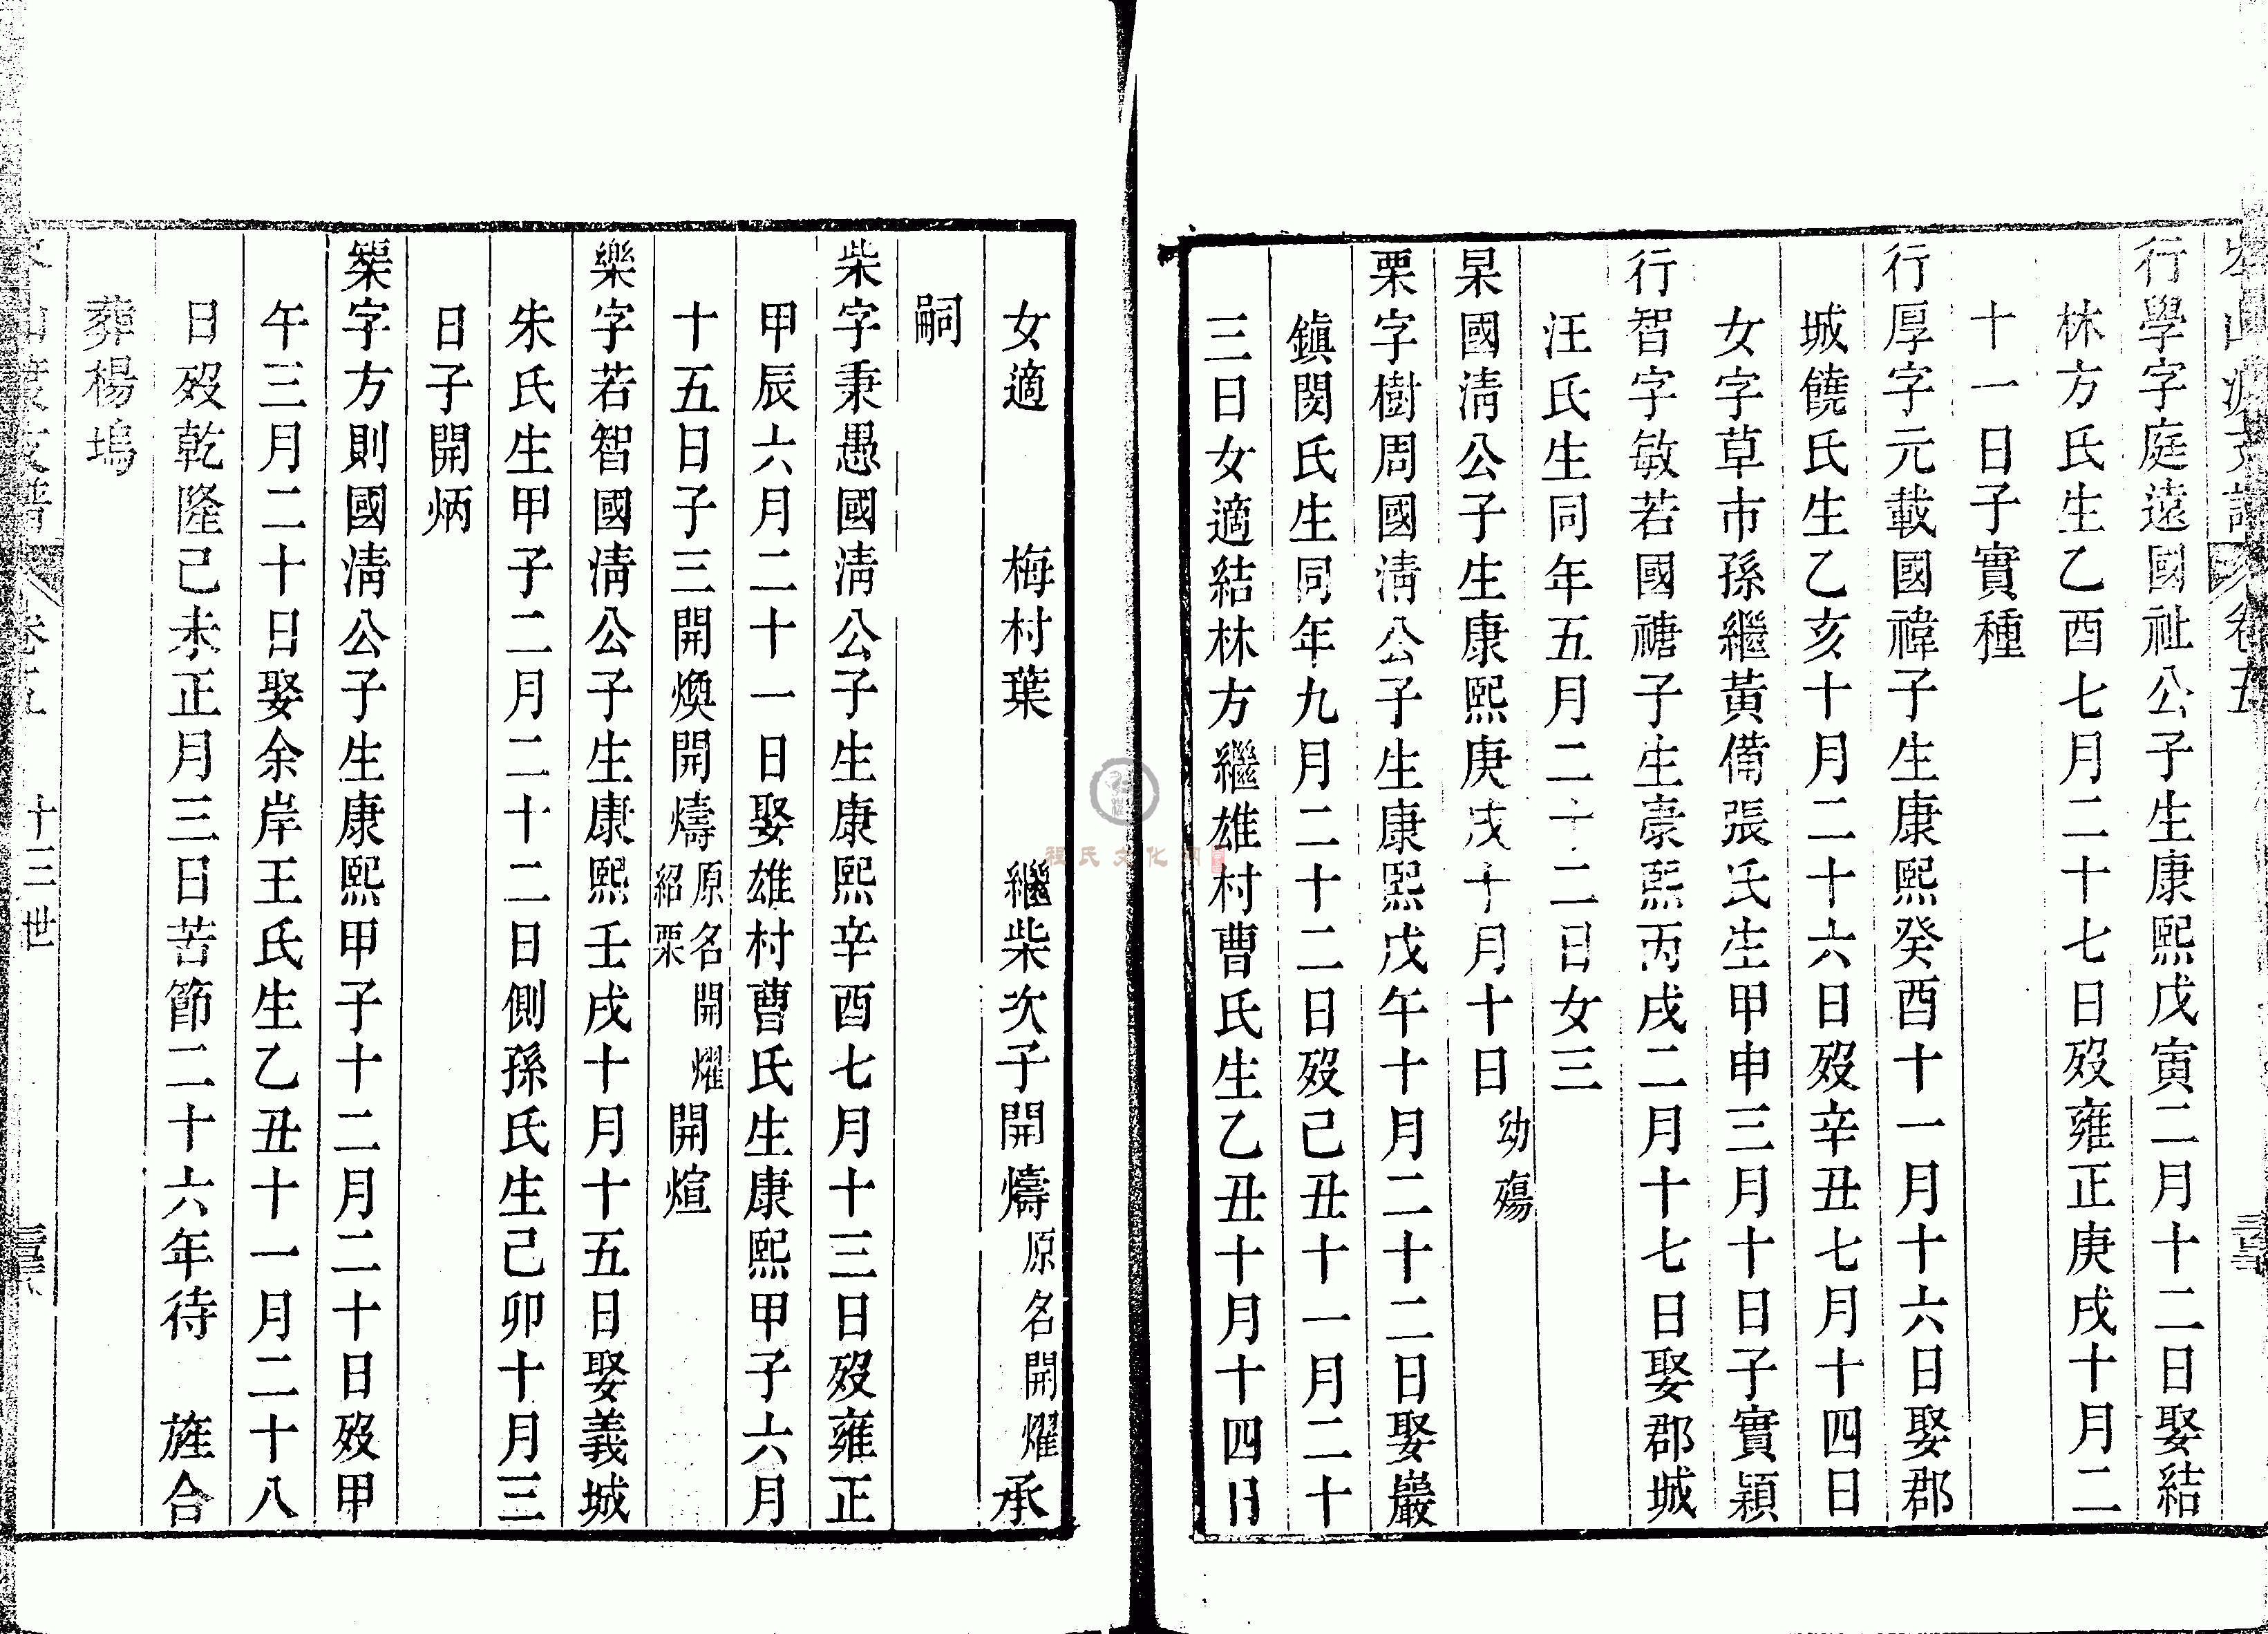 行學字庭遠國祉公子生康熙戊寅二月十二日娶結
林方氏生乙酉七月二十七日歿雍正庚戌十月二
十一日子實種
行厚字元載國禕子生康熙癸酉十一月十六日娶郡
城饒氏生乙亥十月二十六日歿辛丑七月十四日
女字草市孫繼黃備張氏生甲申三月十日子實穎
行智字敏若國禟子生康熙丙戌二月十七日娶郡城
汪氏生同年五月二十二日女三
杲國淸公子生康熙庚戌十月十日幼殤
栗字樹周國淸公子生康熙戊午十月二十二日娶巖
鎮閔氏生同年九月二十二日歿己丑十一月二十
三日女適結林方繼雄村曹氏生乙丑十月十四日
女適 梅村葉 繼柴次子開燽原名開燿承
嗣
柴字秉愚國淸公子生康熙辛酉七月十三日歿雍正
甲辰六月二十一日娶雄村曹氏生康熙甲子六月
十五日子三開煥開燽原名開燿紹栗開煊
樂字若智國淸公子生康熙壬戌十月十五日娶義城
朱氏生甲子二月二十二日側孫氏生己卯十月三
日子開炳
槼字方則國淸公子生康熙甲子十二月二十日歿甲
午三月二十日娶余岸王氏生乙丑十一月二十八
日歿乾隆己未正月三日苦節二十六年待 旌合
葬楊塢
卷五 十三世
程氏文化网